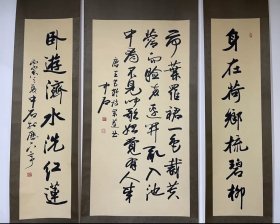 身在荷鄉梳碧柳
荷葉羅裙一色裁芙
蓉向臉兩邊開亂入池
中看不見聞歌始覺有人來
唐王昌齡採蓮曲
中石
卧遊濟水洗紅蓮
中石